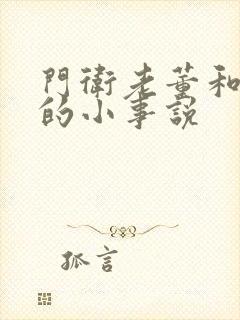 門衛老董和
的小事說
孤言